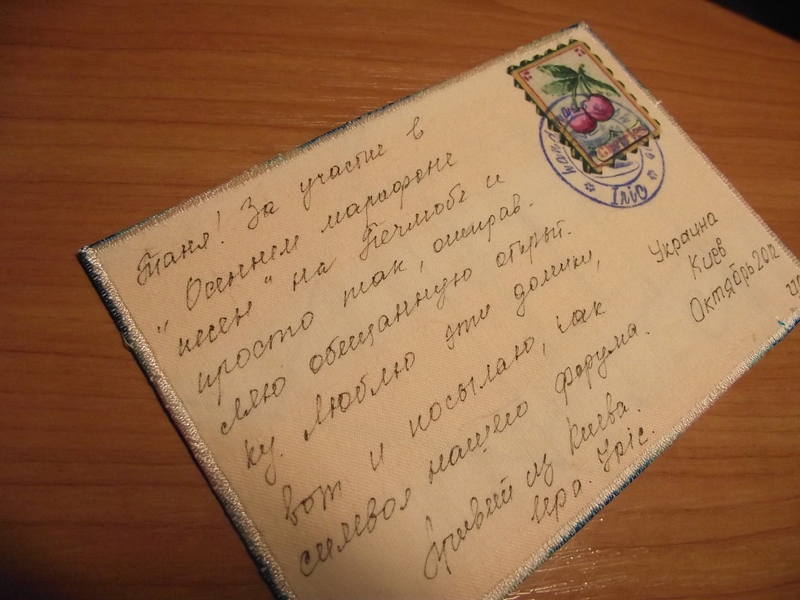 Таня! За участие в
"Осеннем марафоне
песен" на Печмобе и
просто так, отправ-
ляю обещанную открыт-
ку. Люблю эти домики,
вот и посылаю, как
символ нашего форума.
Привет из Киева.
Ира. Iric.
Украина
Киев
Октябрь 2012
Iric